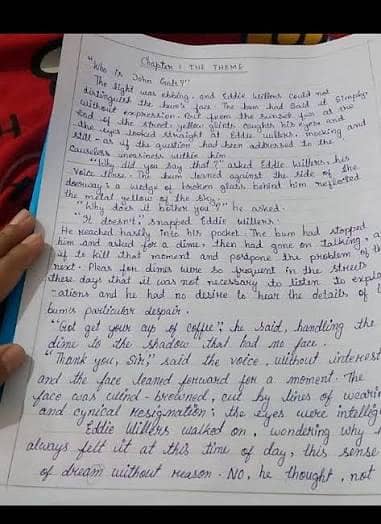 Chapter 1 THE THEME
"Who is John Galt?"
The light was ebbing, and Eddie Willers could not
distinguish the bum's face. The bum had said it simply,
without expression. But from the sunset far at the
end of the street, yellow glints caught his eyes, and
the eyes looked straight at Eddie Willers, mocking and
still - as if the question had been addressed to the
causeless uneasiness within him.
"Why did you say that?" asked Eddie Willers, his
voice tense. The bum leaned against the side of the
doorway; a wedge of broken glass behind him reflected
the metal yellow of the sky.
"Why does it bother you?" he asked.
"It doesn't, snapped Eddie Willers.
He reached hastily into his pocket. The bum had stopped
him and asked for a dime, then had gone on talking, a
if to kill that moment and postpone the problem of th
next. Pleas for dimes were so frequent in the streets
these days that it was not necessary to listen to expla
-ations and he had no desire to hear the details of
bum's particular despair.
"Got get your cup of coffee", he said, handling the
dime to the shadow that had no face.
"Thank you, Sir," said the voice, without interest
and the face leaned forward for a moment. The
face was wind-browned, cut by lines of wearin
and cynical resignation; the eyes were intellig
Eddie Willers walked on, wondering why
always felt it at this time of day, this sense
of dream without reason. NO, he thought, not